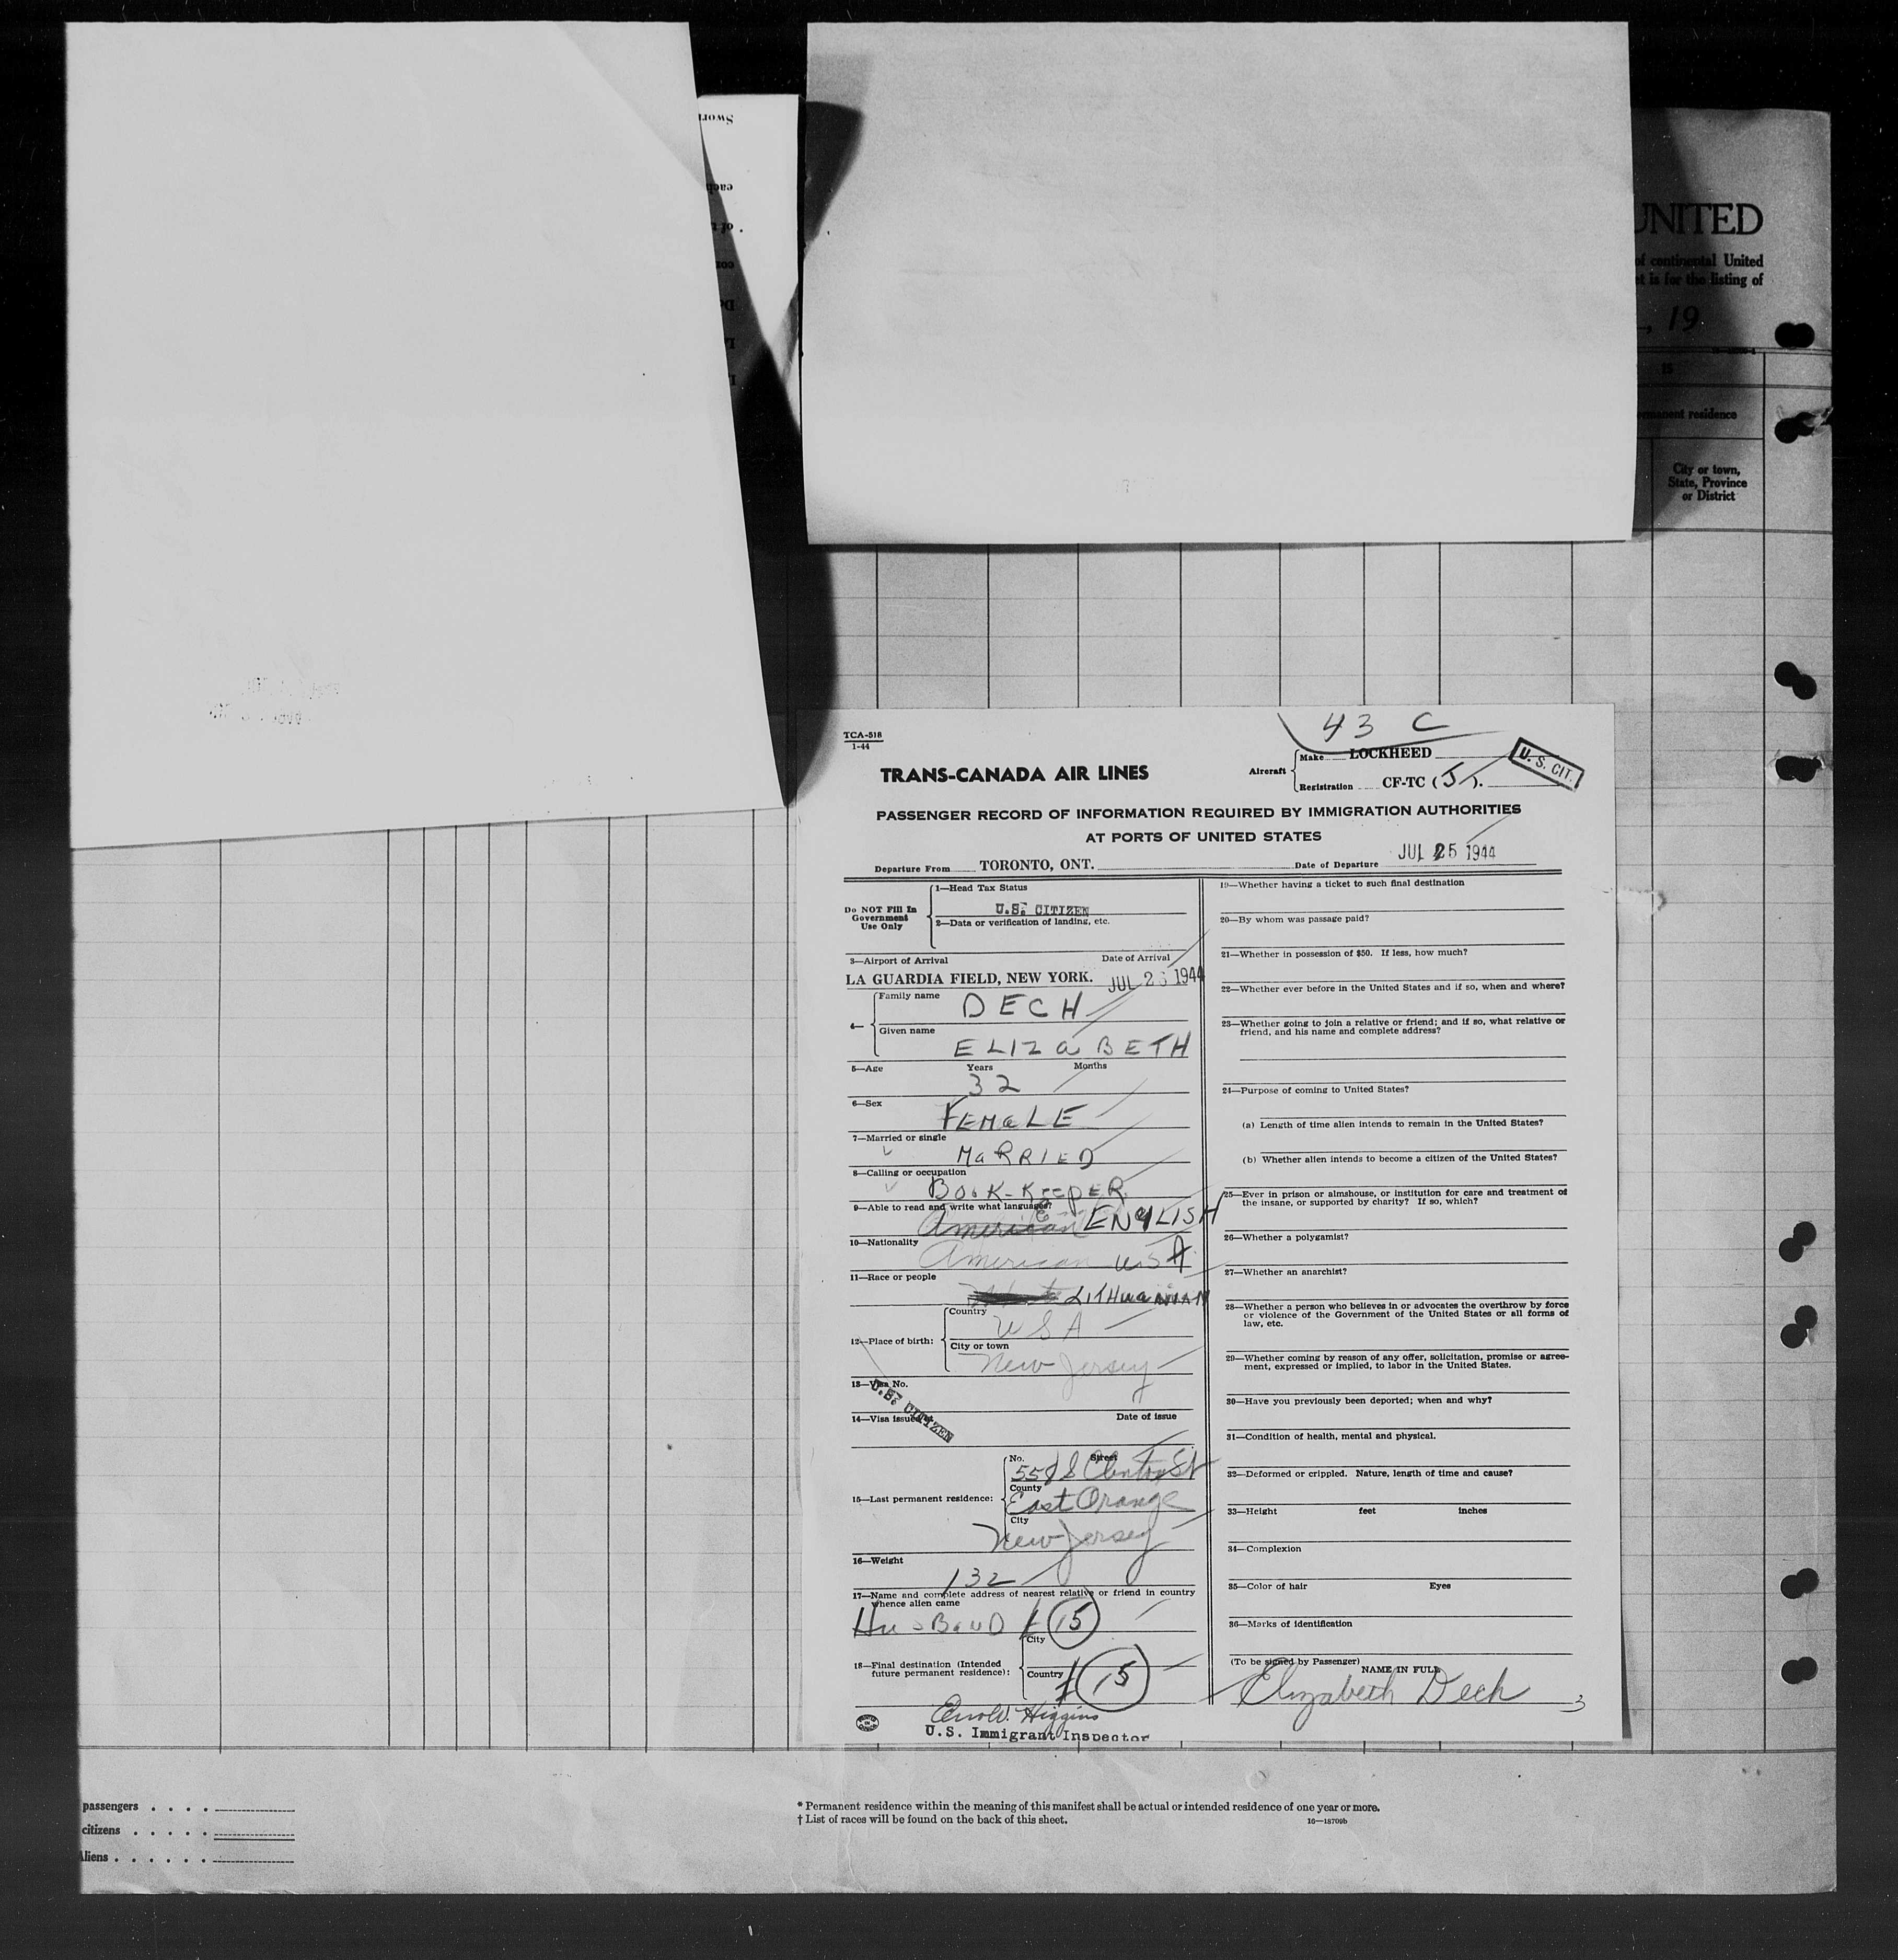 Swor
each
of t
cor
UNITED
of continental United
et is for the listing of
, 19
15
ermanent residence
City or town,
State, Province
or District
43 C
TCA-518
1-44
TRANS-CANADA AIR LINES
Aircraft
Make LOCKHEED
Registration CF-TC (J).
U. S. CIT.
PASSENGER RECORD OF INFORMATION REQUIRED BY IMMIGRATION AUTHORITIES
AT PORTS OF UNITED STATES
Departure From TORONTO, ONT. Date of Departure JUL 25 1944
Do NOT Fill In
Government
Use Only
1—Head Tax Status
U.S. CITIZEN
2—Data or verification of landing, etc.
3—Airport of Arrival Date of Arrival
LA GUARDIA FIELD, NEW YORK. JUL 25 1944
4—
Family name DECH
Given name
ELIZaBETH
5—Age Years Months
32
6—Sex
FEMaLE
7—Married or single
MaRRIED
8—Calling or occupation
BOOK-KEEPER
9—Able to read and write what languages?
American ENGLISH
10—Nationality
American USA
11—Race or people
LITHuaNIAN
12—Place of birth:
Country
USA
City or town
New Jersey
13—Visa No.
U.S. CITIZEN
14—Visa issued Date of issue
15—Last permanent residence:
No. Street
558 S Clinton St
County
East Orange
City
New Jersey
16—Weight
132
17—Name and complete address of nearest relative or friend in country
whence alien came
HusBaND # 15
18—Final destination (Intended
future permanent residence):
City
Country # 15
Higgins
U.S. Immigrant Inspector
19—Whether having a ticket to such final destination
20—By whom was passage paid?
21—Whether in possession of $50. If less, how much?
22—Whether ever before in the United States and if so, when and where?
23—Whether going to join a relative or friend; and if so, what relative or
friend, and his name and complete address?
24—Purpose of coming to United States?
(a) Length of time alien intends to remain in the United States?
(b) Whether alien intends to become a citizen of the United States?
25—Ever in prison or almshouse, or institution for care and treatment of
the insane, or supported by charity? If so, which?
26—Whether a polygamist?
27—Whether an anarchist?
28—Whether a person who believes in or advocates the overthrow by force
or violence of the Government of the United States or all forms of
law, etc.
29—Whether coming by reason of any offer, solicitation, promise or agree-
ment, expressed or implied, to labor in the United States.
30—Have you previously been deported; when and why?
31—Condition of health, mental and physical.
32—Deformed or crippled. Nature, length of time and cause?
33—Height feet inches
34—Complexion
35—Color of hair Eyes
36—Marks of identification
(To be signed by Passenger)
NAME IN FULL
Elizabeth Dech 3
passengers . . . .
citizens . . . . .
Aliens . . . . . .
* Permanent residence within the meaning of this manifest shall be actual or intended residence of one year or more.
† List of races will be found on the back of this sheet. 16—18709b